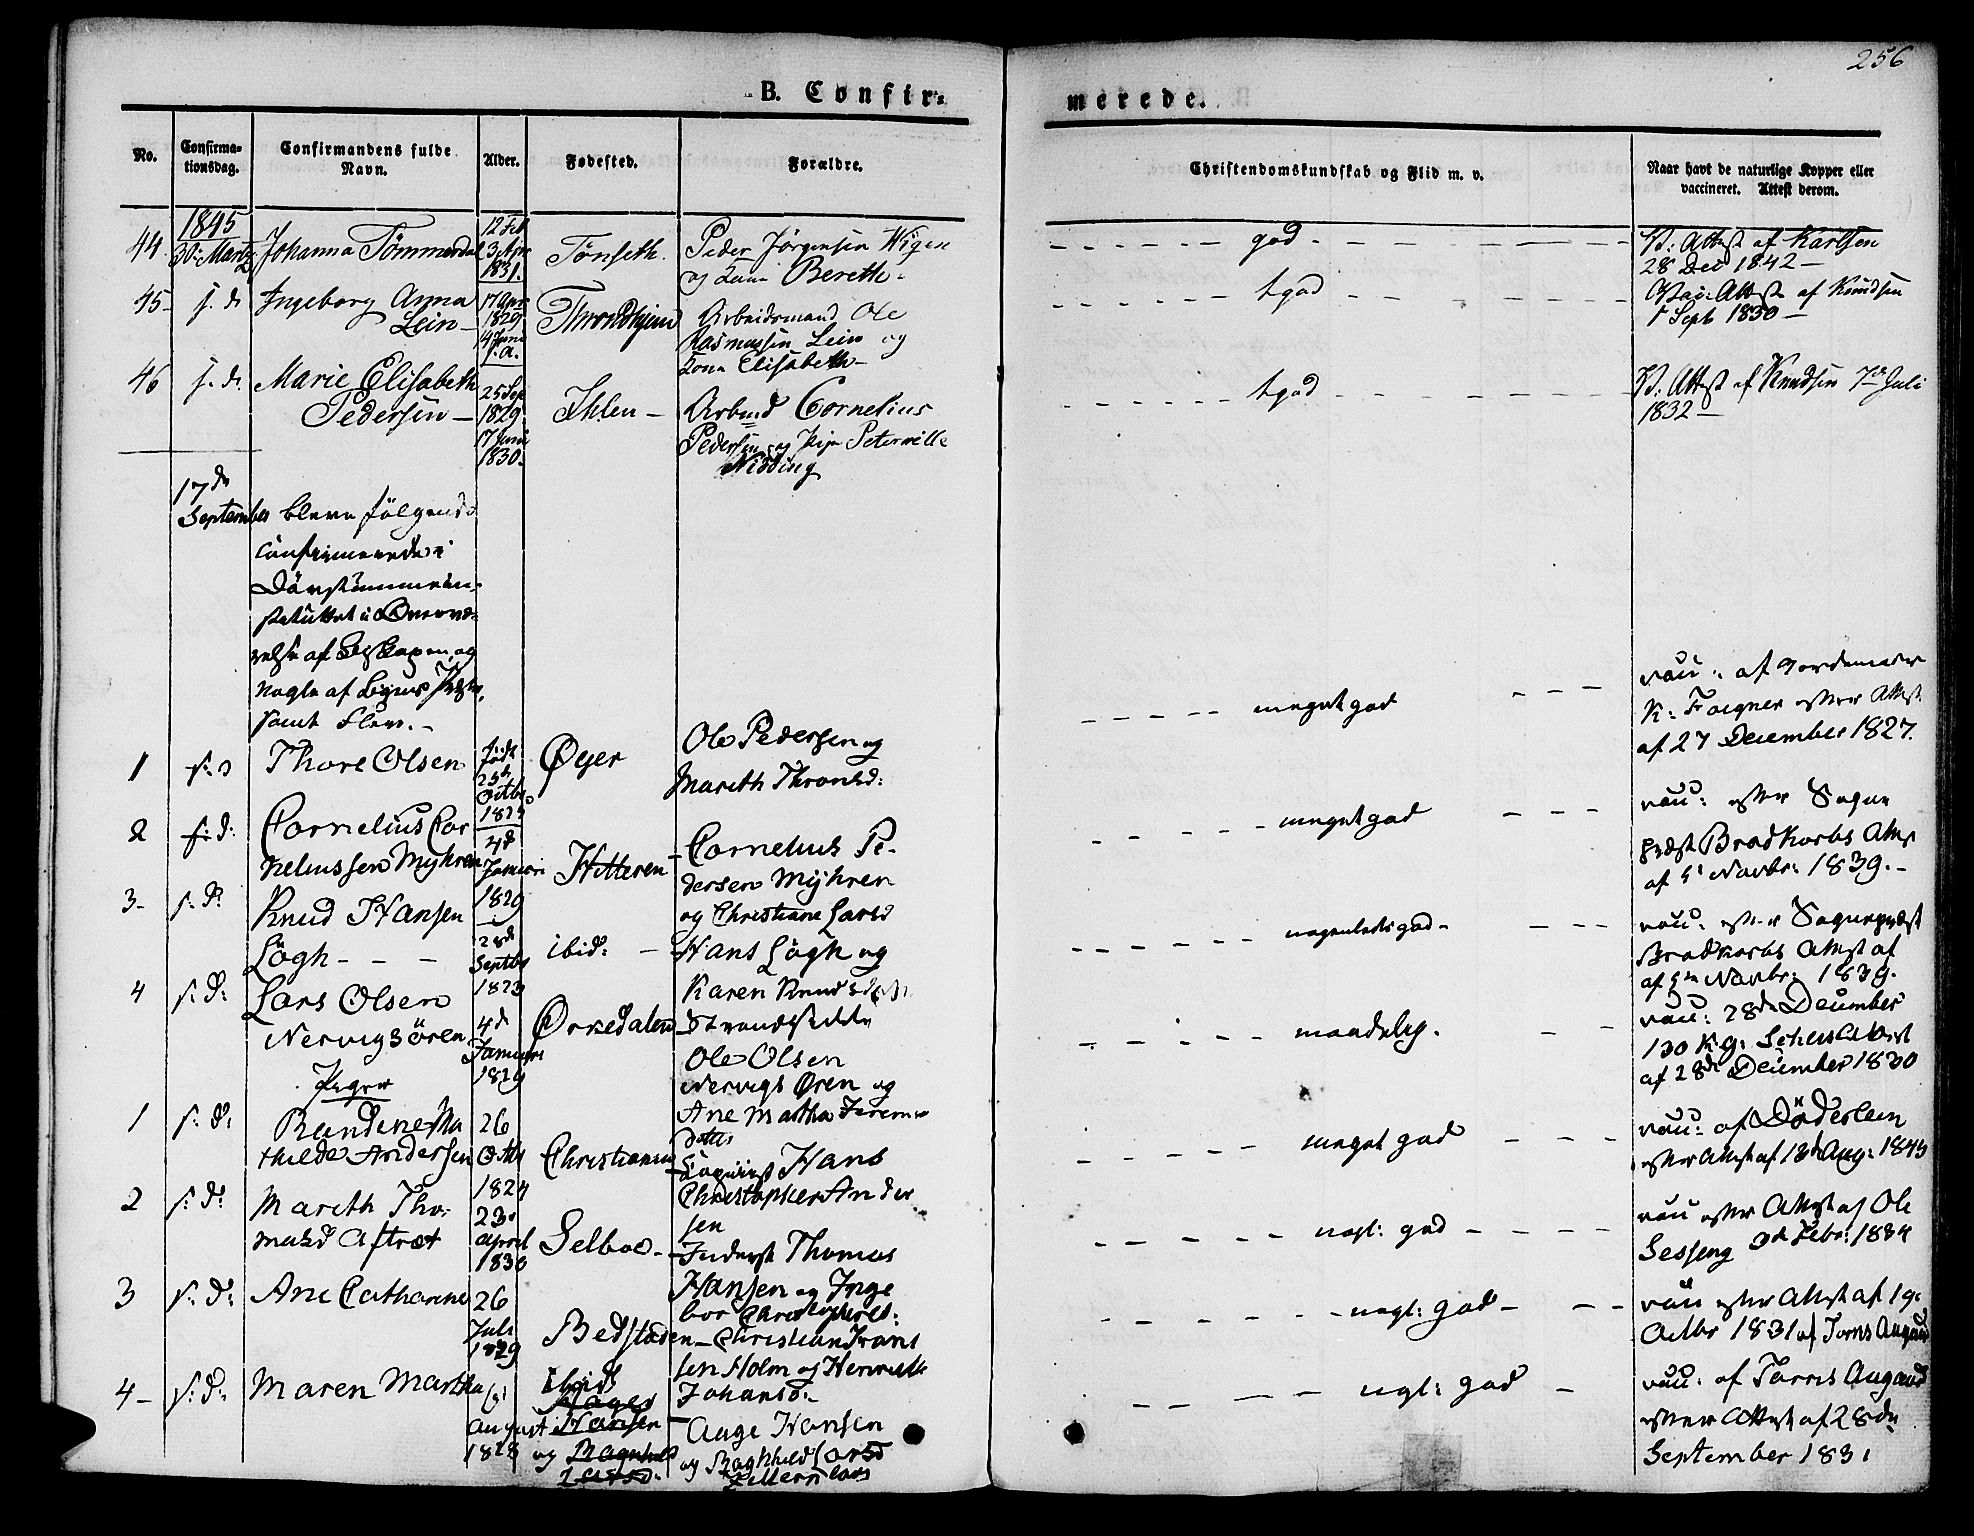 256
B. Confir-
merede.
No.
Confirma-
tionsdag.
Confirmandens fulde
Navn.
Alder.
Fødested.
Forældre.
Christendomskundskab og Flid m. v.
Naar havt de naturlige Kopper eller
vaccineret. Attest derom.
1845
44. 30. Martz Johanna Tömmerdal
12 Feb
3 Apr
1831.
Tönseth.
Peder Jörgensen Wigen
og Kone Bereth
god
V. Attest af Karlsen
28 Dec 1842
45 s. d. Ingeborg Anna
Lein
17 Apr
1829
14 Juni
s. a.
Throndhjem
Arbeidsmand Ole
Rasmussen Lein og
Kone Elisabeth
tgod
Vac. Attest af Knudsen
1 Sept 1830
46 s. d. Marie Elisabeth
Pedersen
25 Sep
1829.
17 Juni
1830.
Ihlen
Arbmd Cornelius
Pedersen og Pige Peternille
Nidding
tgod
V. Attest af Knudsen 7de Juli
1832
17de
September bleve følgende
Confirmerede i
Døvstummein-
stetuttet i Overvæ-
relse af Biskopen og
nogle af Byens Præster,
samt Flere.
1 s. d. Thore Olsen
født
25de
Octbr
Øyer
Ole Pedersen og
Marith Thronsd:
meget god
vacc: af
K: Fougner efter Attest
af 27 December 1827.
2 s: d: Cornelius Cor
neliussen Myhren
4de
Januari
1829
Hitteren
Cornelius Pe-
dersen Myhren
og Christiane Larsd
meget god
vacc: efter Sogne
præst Bradkorbs Attest
af 5t Novbr: 1839.
3 s. d: Knud Hansen
Lögh
28de
Septbr
1823
ibid:
Hans Lögh og
Karen Knudsdtr
nogenledes god
vacc: efter Sognepræst
Bradkorbs Attest af
af 5te Novbr: 1839.
4 s: d: Lars Olsen
Nervigsören
4de
Januari
1829
Orkedalen
Strandsidder
Ole Olsen
Nervigs Øren og
Ane Martha Jerem
datter
maadelig.
vacc: 28de December
af 28de December 1830
Piger
1 s: d: Randine Ma
thilde Andersen
26
Octbr
1824
Christiansund
Hans
Christopher Ander
sen
meget god
vacc: af Döderlein
efter Attest af 13de Aug: 1843
2 s: d: Marith Tho-
masd Aftret
23de
April
1830
Selboe
Inderst Thomas
Hansen og Inge
bor Christophersd:
nogl: god
vacc efter Attest af Ole
Sesseng 3de Febr: 1834
3 s: d: Ane Catharine
26
Juli
1829
Bedstaden
Christian Frans
sen Holm og Henriette
Johansd:
nogl: god
vacc efter Attest af 19.
Octbr 1831 af Torris Augaard
4 s: d: Maren Martha
August
1828
Ibid
Hansen
og Ragnhild
Larsd:
Auge Hansen
og Ragnhild Larsd
nogl: god
vacc: af Torris Augaard
efter Attest af 28de
September 1831